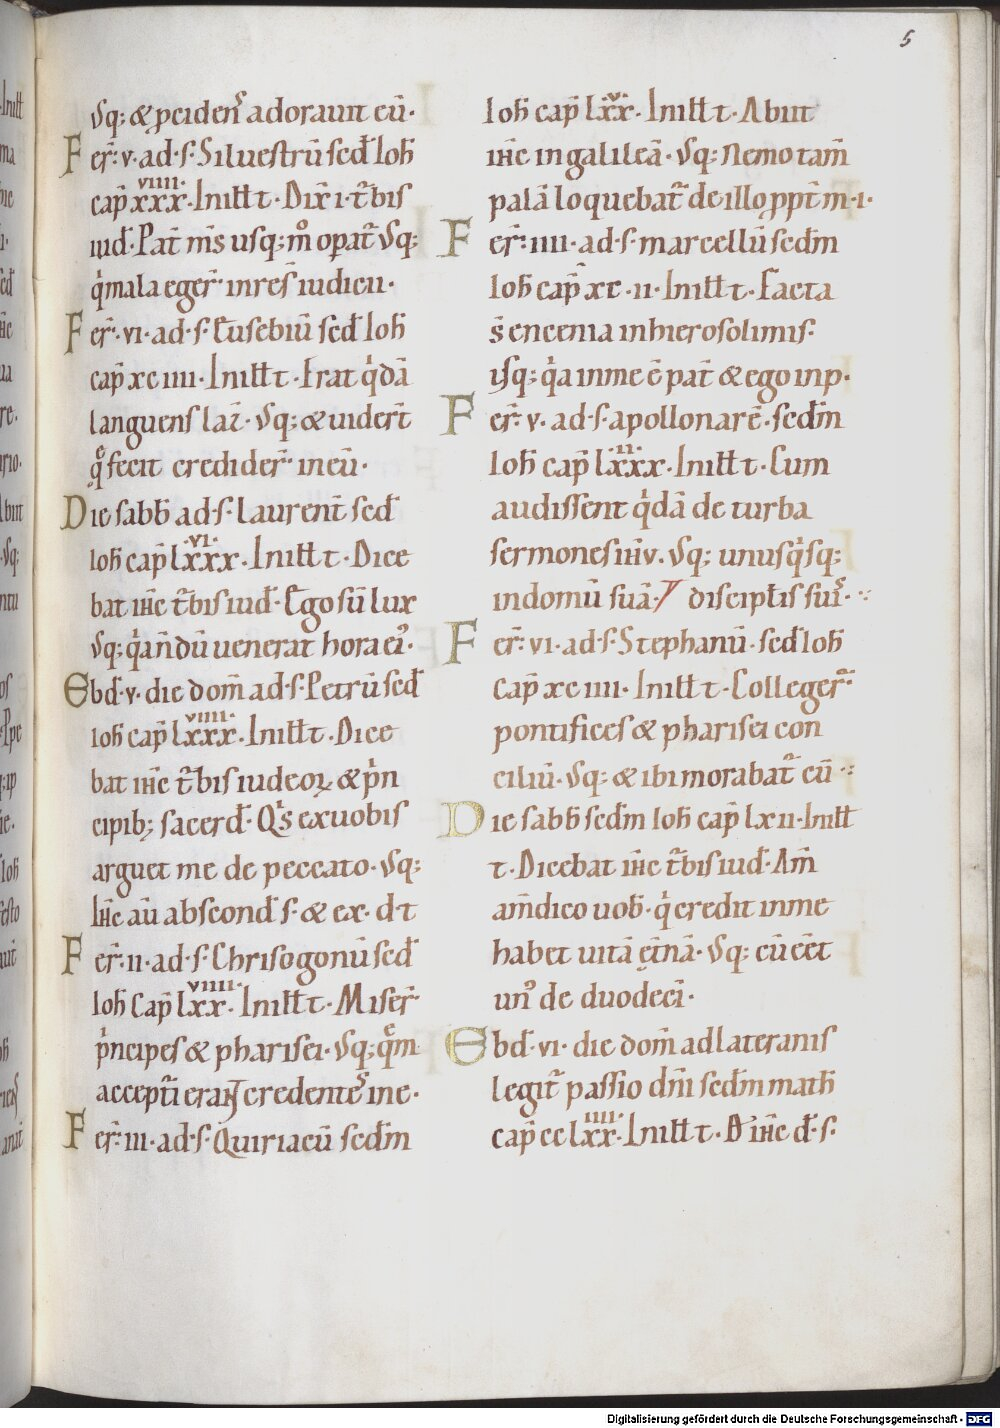 5
Vsq: & pcidens adorauit eū·
Fer̄·v·ad·s·Siluestrū sed̄ Ioh̄
cap̄ xxx·viiii·Initt t·Dix̄·i·t̄bis
iud̄·Pat̄ m̄s usq: m̊ opat̄ Vsq:
q̇ mala eger̄·in res̄ iudicii·
Fer̄·vi·ad·s·Eusebiū sed̄ Ioh̄
cap̄ xc iiii·Initt t·Erat q̇dā
languens laz̄·Vsq: & uider̄t
q̊ fecit credider̄ in eū·
Die sabb̄ ad·s·Laurent̄ sed̄
Ioh̄ cap̄ lxxx·vi·Initt t·Dice
bat ih̄c t̄bis iud̄·Ego sū lux
Vsq: q̇a n̄dū uenerat hora ei᾽·
Ebd̄·v·die dom̄ ad·s·Petrū sed̄
Ioh̄ cap̄ lxxx·viiii·Initt t·Dice
bat ih̄c t̄bis iudeoꝝ & p̄n
cipib; sacerd̄·Q̇s ex uobis
arguet me de peccato·Vsq:
Ih̄c aū abscond̄ s·& ex·d·t
Fer̄·ii·ad·s·Chrisogonū sed̄
Ioh̄ Cap̄ lxx·viiii·Initt t·Miser̄
p̄ncipes & pharisei·Vsq: q̊m
accepti eraɴ̄t credentes in e·
Fer̄·iii·ad·s·Quiriacū sed̄m
Ioh̄ cap̄ lxx·v·Initt t·Abiit
ih̄c in galileā·Vsq: Nemo tam̄
palā loquebat̄ de illo ppt̄ m·i·
Fer̄·iiii·ad·s·marcellū sed̄m
Ioh̄ cap̄ xc·ii·Initt t·Facta
s̄ encenia in hierosolimis·
Vsq: q̇a in me ē pat̄ & ego in p·
Fer̄·v·ad·s·apollonarē·sed̄m
Ioh̄ cap̄ lxxx·ii·Initt t·Cum
audissent q̇dā de turba
sermones ih̄v·Vsq; unusq̇sq;
in domū suā·y discipłis suis̄·
Fer̄·vi·ad·s·Stephanū·sed̄ Ioh̄
Cap̄ xc iiii·Initt t·Colleger̄
pontifices & pharisei con
ciliū·Vsq: & ibi morabat̄ cū
Die sabb̄ sed̄m Ioh̄ cap̄ lxii·Initt
t·Dicebat ih̄c t̄bis iud̄·Am̄
am̄ dico uob̄·q̇ credit in me
habet uitā et̄nā·Vsq: cū eēt
un᾽ de duodecī·
Ebd̄·vi·die dom̄ ad lateranis
legit̄ passio dn̄i sed̄m math̄
cap̄ cclxx·iiii·Initt t·D᾽ ih̄c d̄·s·
Digitalisierung gefördert durch die Deutsche Forschungsgemeinschaft - DFG